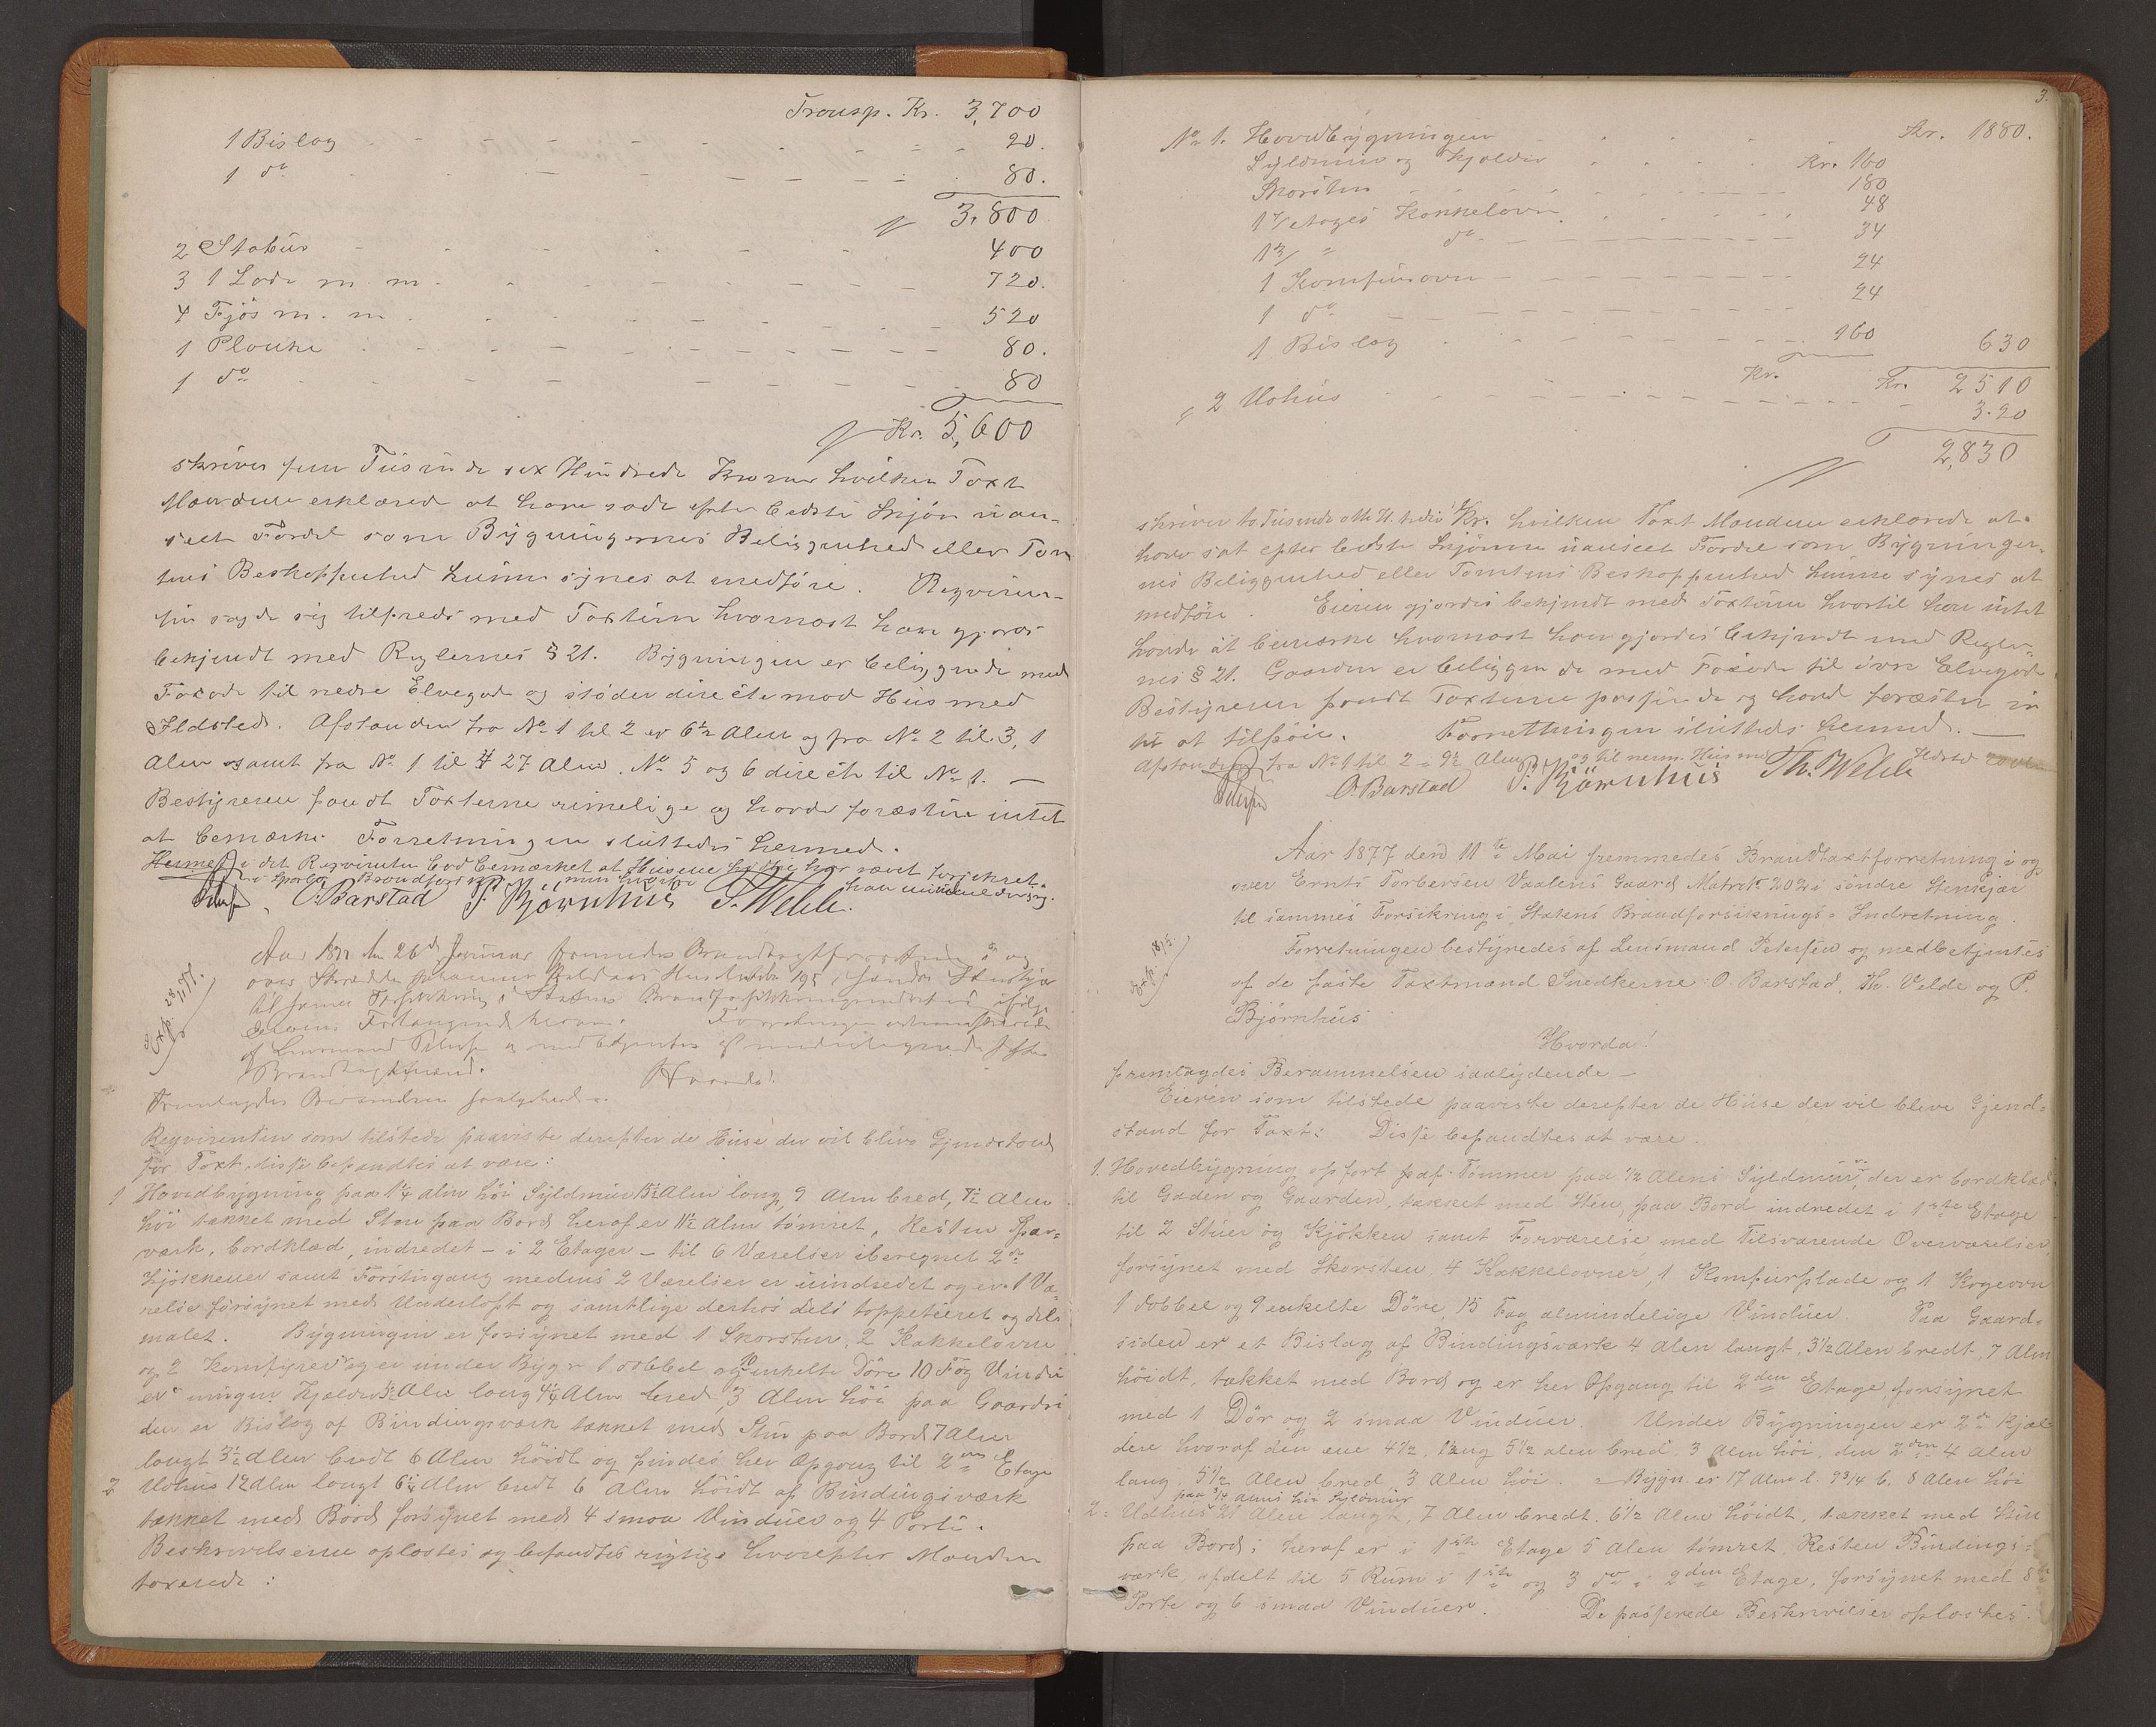 Transp. Kr. 3,700
1 Bislag - - - 20.
1 do - - - 80.
3,800
2 Stabur - - - 400
3 1 Lade m. m. - - - 720.
4 Fjøs m. m. - - - 520
1 Planke - - - 80.
1 do - - - 80
Kr. 5,600
skriver fem Tusinde sex Hundrede Kroner hvilken Taxt
Mændene erklærede at have sat efter bedste Skjøn uan-
seet Fordel som Bygningernes Beliggenhed eller Tom
tens Beskaffenhed kunne synes at medføre. Reqviren-
ten sagde sig tilfreds med Taxten hvornæst han gjordes
bekjendt med Reglernes § 21. Bygningen er beliggende med
Facade til nedre Elvegade og støder directe mod Hus med
Ildsted. Afstanden fra No 1 til 2 er 6½ Alen og fra No 2 til 3, 1
Alen samt fra No 1 til 4 27 Alen. No 5 og 6 directe til No 1. —
Bestyreren fandt Taxterne rimelige og havde forøvrigt intet
at bemærke. Forretningen sluttedes hermed.
i det Reqvirenten bad bemærket at Husene hidtil har været forsikret
O. Barstad P. Bjørnhus T. Welde.
Aar 1877 den 26de Januar fremmedes Brandtaxtforretning i og
over Huus Matr. No 195 i søndre Stenkjær
til sammes Forsikring i Statens Brandforsikringsindretning ifølge
Eierens Forlangende herom. Forretningen
af Lensmand Petersen og medbetjentes af undertegnede faste
Brandtaxtmænd. Hvorda!
Exp. 28/1 77.
Fremlagdes Berammelsen saalydende.
Reqvirenten som tilstede paaviste derefter de Huse der vil blive Gjenstand
for Taxt, disse befandtes at være:
1 Hovedbygning paa 1¼ Alen høi Syldmur 15½ Alen lang, 9 Alen bred, 7½ Alen
høi tækket med Sten paa Bord heraf er 11½ Alen tømret, Resten
værk, bordklæd, indredet - i 2 Etager - til 6 Værelser iberegnet 2de
Kjøkkener samt Forstugang medens 2 Værelser er uindredet og er 1 Væ
relse forsynet med Underloft og samtlige derhos dels tappetseret og dels
malet. Bygningen er forsynet med 1 Skorsten, 2 Kakkelovne
og 2 Komfyrer og er under Byg- 1 dobbel og 10 enkelte Døre 10 Fag Vindu
er ningen Kjælder Alen lang 4¼ Alen bred, 3 Alen høi paa Gaardsi
den er Bislag af Bindingsværk tækket med Sten paa Bord 7 Alen
langt 3½ Alen bredt 6 Alen høidt og findes her Opgang til 2den Etage
2 Udhus 12 Alen langt 6¼ Alen bredt 6 Alen høidt af Bindingsværk
tækket med Bord forsynet med 4 smaa Vinduer og 4 Porte.
Beskrivelserne oplæstes og befandtes rigtige hvorefter Mænden
taxerede:
3.
No 1. Hovedbygningen - - - Kr. 1880.
Syldmur og Kjælder - - - Kr. 160
Skorsten - - - 180
1 Etages Kakkelovn - - - 48
1 3/ " do - - - 34
1 Komfurovn - - - 24
1 do - - - 24
1 Bislag - - - 160 630
Kr. Kr. 2510
2 Uthus - - - 3.20
2,830
skriver to Tusende otte H. tredive Kr. hvilken Taxt Mændene erklærede at
have sat efter bedste Skjønne uanseet Fordel som Bygninger-
nes Beliggenhed eller Tomtens Beskaffenhed kunne synes at
medføre. Eieren gjordes bekjendt med Taxterne hvortil han intet
havde at bemærke hvornæst han gjordes bekjendt med Regler-
nes § 21. Gaarden er beliggende med Facade til øvre Elvegade
Bestyreren fandt Taxterne passende og havd forøvrigt in
tet at tilføie. Forretningen sluttedes hermed. —
Afstanden fra No 1 til 2 - 9½ Alen og til nerm. Hus med Ildsted
O. Barstad P. Bjørnhus Th. Welde
Aar 1877 den 11te Mai fremmedes Brandtaxtforretning i og
over Ernts Torbersen Vaalens Gaard Matr. No 202 i søndre Stenkjær
til sammes Forsikring i Statens Brandforsiknings-Indretning.
Forretningen bestyredes af Lensmand Petersen og medbetjentes
af de faste Taxtmænd Snedkerne O. Barstad, Th. Velde og P.
Bjørnhus
Exp. 18/5.
Hvorda!
fremlagdes Berammelsen saalydende —
Eieren som tilstede paaviste derefter de Huse der vil bleve Gjend-
stand for Taxt: Disse befandtes at være.
1. Hovedbygning opført af Tømmer paa ½ Alens Syldmur, der er bordklæd
til Gaden og Gaarden, tækket med Sten, paa Bord indredet i 1ste Etage
til 2 Stuer og Kjøkken samt Forværelse med Tilsvarende Overværelser
forsynet med Skorsten 4 Kakkelovner, 1 Komfurplade og 1 Kogeovn
1 dobbel og 9 enkelte Døre, 15 Fag almindelige Vinduer. Paa Gaard-
siden er et Bislag af Bindingsværk 4 Alen langt, 3½ Alen bredt, 7 Alen
høidt, tækket med Bord og er her Opgang til 2den Etage forsynet
med 1 Dør og 2 smaa Vinduer. Under Bygningen er 2de Kjæl-
dere hvoraf den ene 4½ lang 5½ alen bred 3 Alen høi, den 2den 4 Alen
lang, 5½ Alen bred 3 Alen høi. - Bygn. er 17 Alen l. 9¾ b. 8 Alen høi
paa ¾ Alens høi Syldmur
2. Udhus 21 Alen langt, 7 Alen bredt 6½ Alen høidt, tækket med Sten
paa Bord; heraf er i 1ste Etage 5 Alen tømret, Resten Bindings-
værk, afdelt til 5 Rum i 1ste og 3 do i 2den Etage, forsynet med 8
Porte og 6 smaa Vinduer. De passerede Beskrivelser oplæstes.